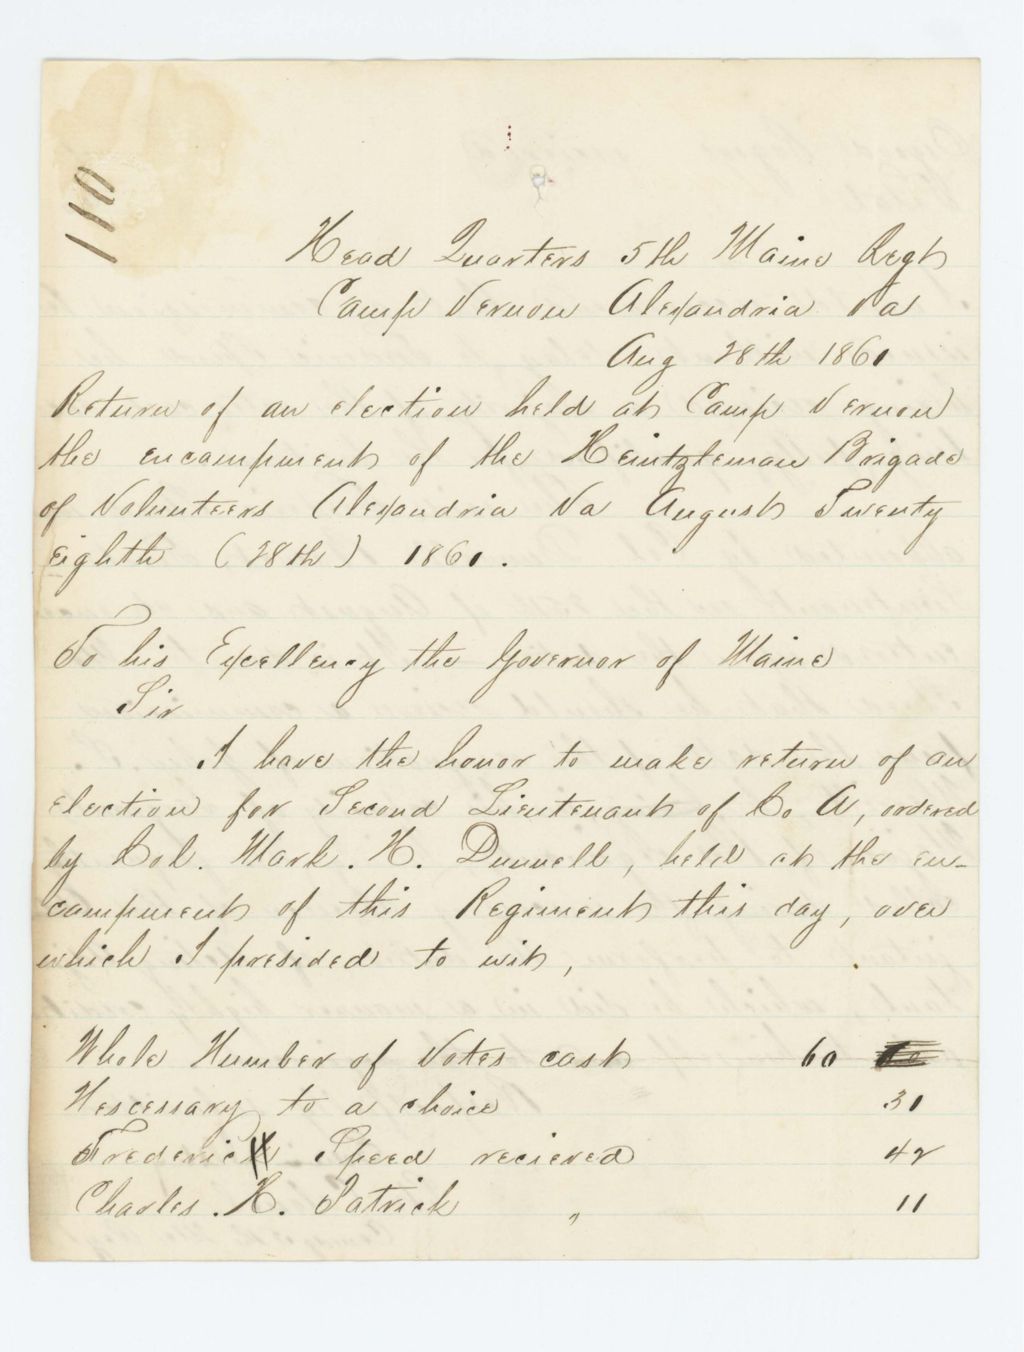 110
Head Quarters 5th Maine Regt
Camp Vernon Alexandria Va
Aug 28th 1861
Return of an election held at Camp Vernon
the encampment of the Heintzleman Brigade
of Volunteers Alexandria Va August Twenty
eighth (28th) 1861.
To his Excellency the Governor of Maine
Sir
I have the honor to make return of an
election for Second Lieutenant of Co A, ordered
by Col. Mark. H. Dunnell, held at the en-
campment of this Regiment this day, over
which I presided to wit,
Whole Number of Votes cast 60
Nescessary to a choice 31
Frederic Speed recieved 42
Charles. H. Patrick " 11